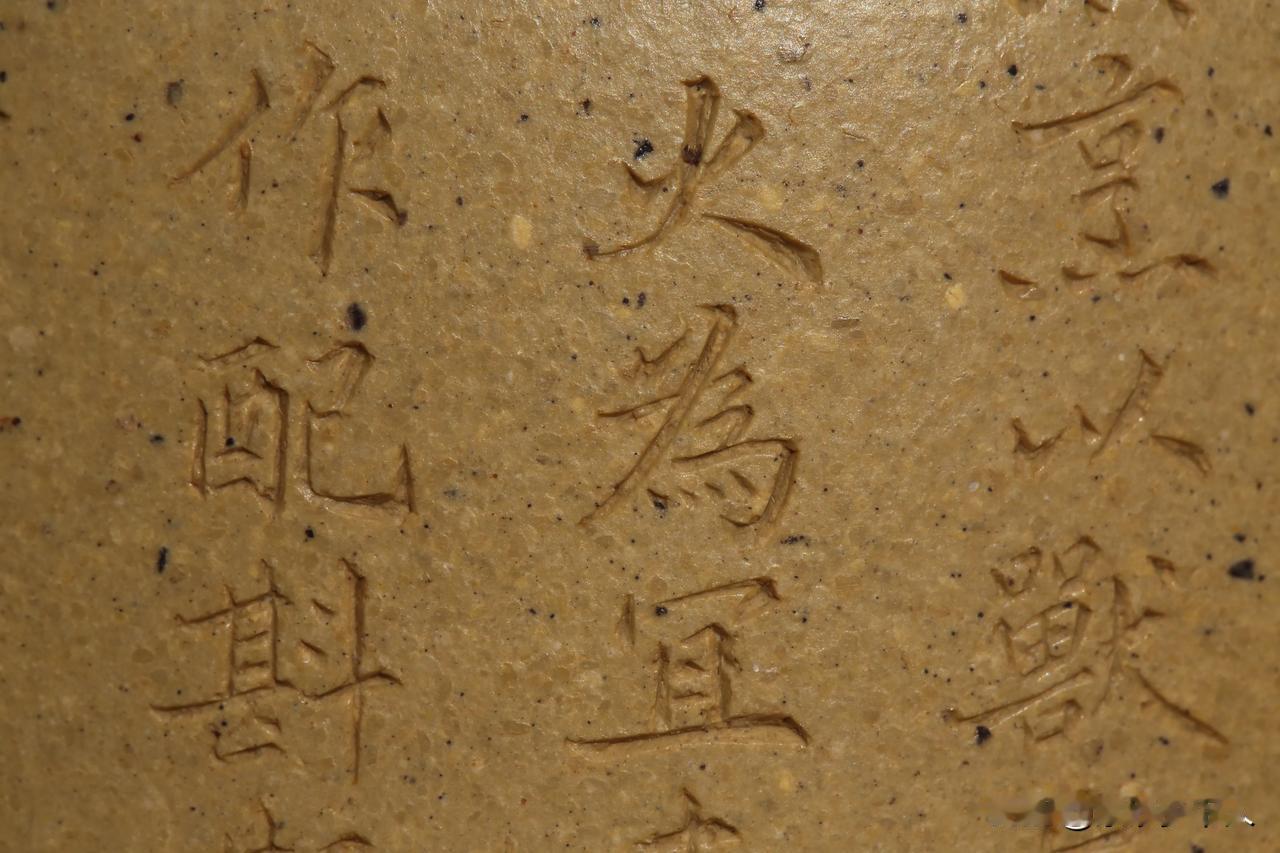 烹以獸
火為宜
作配斟